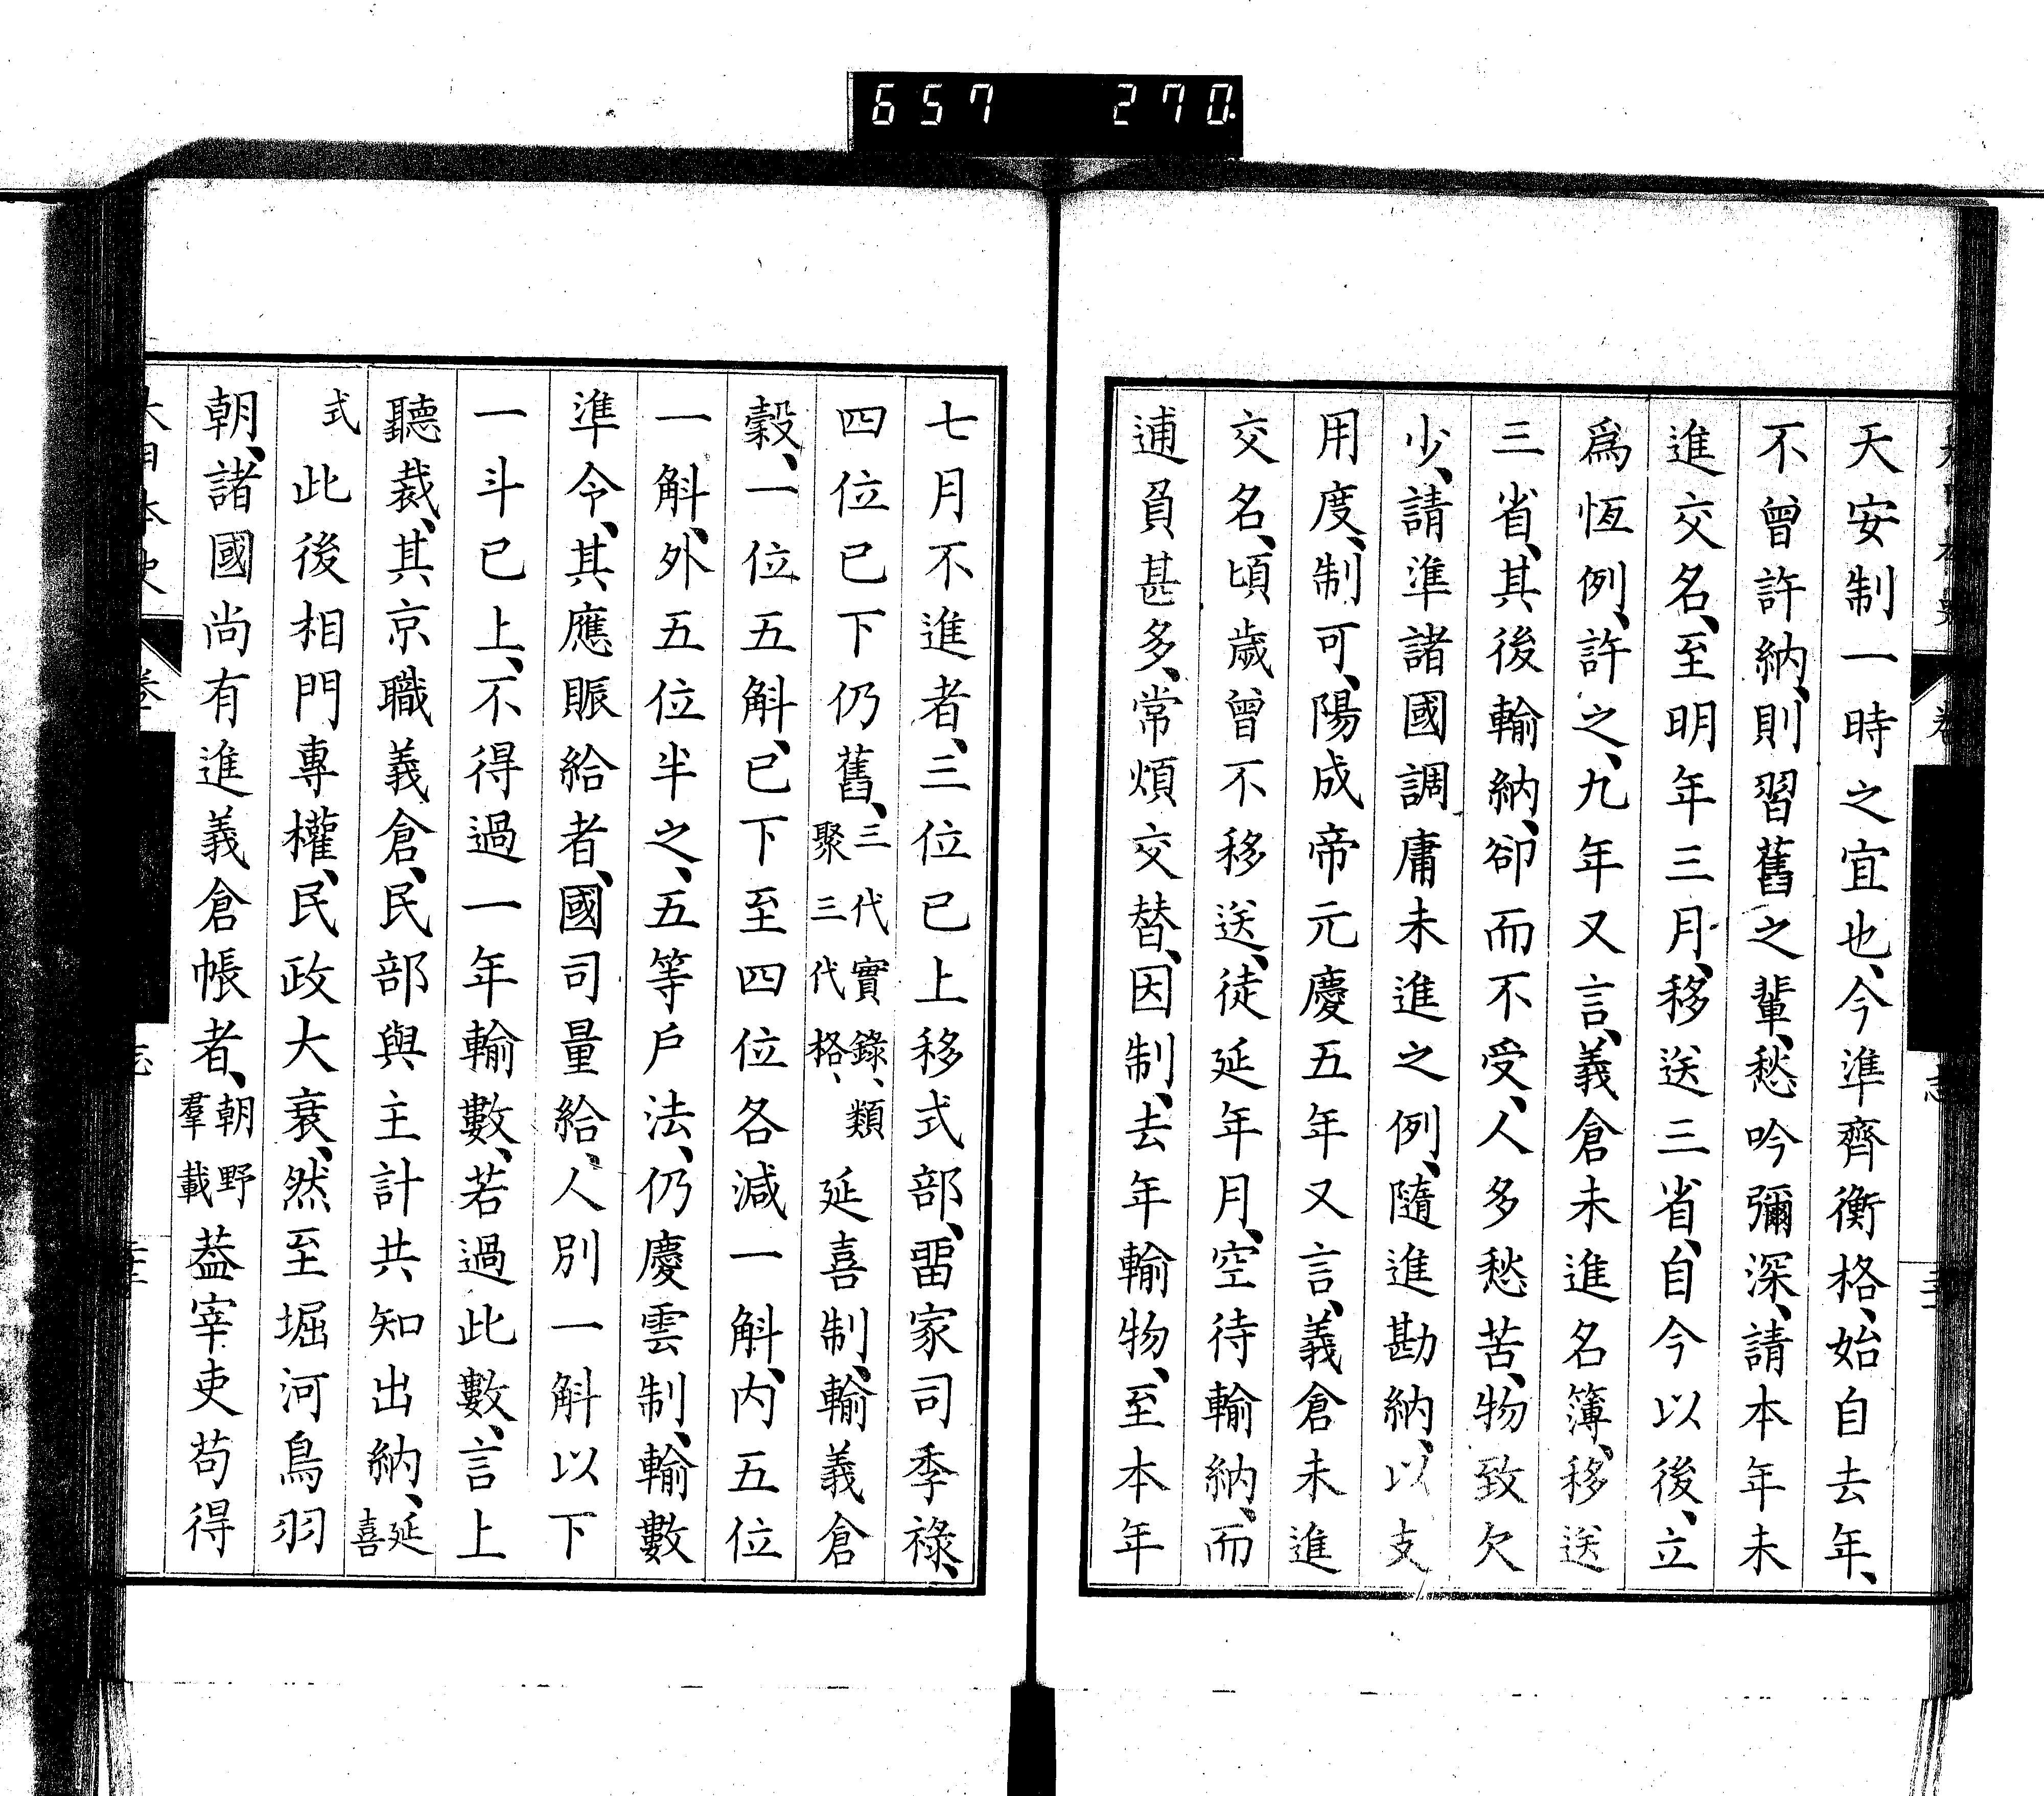 657 270
天安制一時之宜也、今準齊衡格、始自去年、
不曾許納、則習舊之輩、愁吟彌深、請本年未
進交名、至明年三月、移送三省、自今以後、立
爲恆例、許之、九年又言、義倉未進名簿、移送
三省、其後輸納、卻而不受、人多愁苦、物致欠
少、請準諸國調庸未進之例、隨進勘納、以支
用度、制可、陽成帝元慶五年又言、義倉未進
交名、頃歲曾不移送、徒延年月、空待輸納、而
逋負甚多、常煩交替、因制、去年輸物、至本年
七月不進者、三位已上移式部、畱家司季祿、
四位已下仍舊、三代實錄、類聚三代格、延喜制、輸義倉
穀、一位五斛、已下至四位各減一斛、内五位
一斛、外五位半之、五等戶法、仍慶雲制、輸數
準令、其應賑給者、國司量給、人別一斛以下
一斗已上、不得過一年輸數、若過此數、言上
聽裁、其京職義倉、民部與主計共知出納、延喜
式此後相門專權、民政大衰、然至堀河鳥羽
朝、諸國尚有進義倉帳者、朝野羣載葢宰吏苟得
大日本史 卷 志